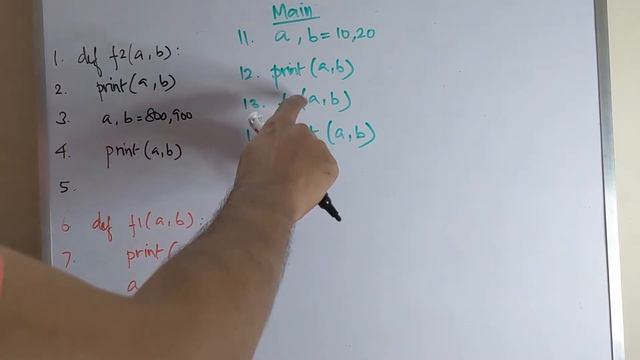 1. def f2(a,b):
2. print(a,b)
3. a,b=800,900
4. print(a,b)
5.
6. def f1(a,b):
7. print(
a
Main
11. a,b=10,20
12. print(a,b)
13. (a,b)
(a,b)